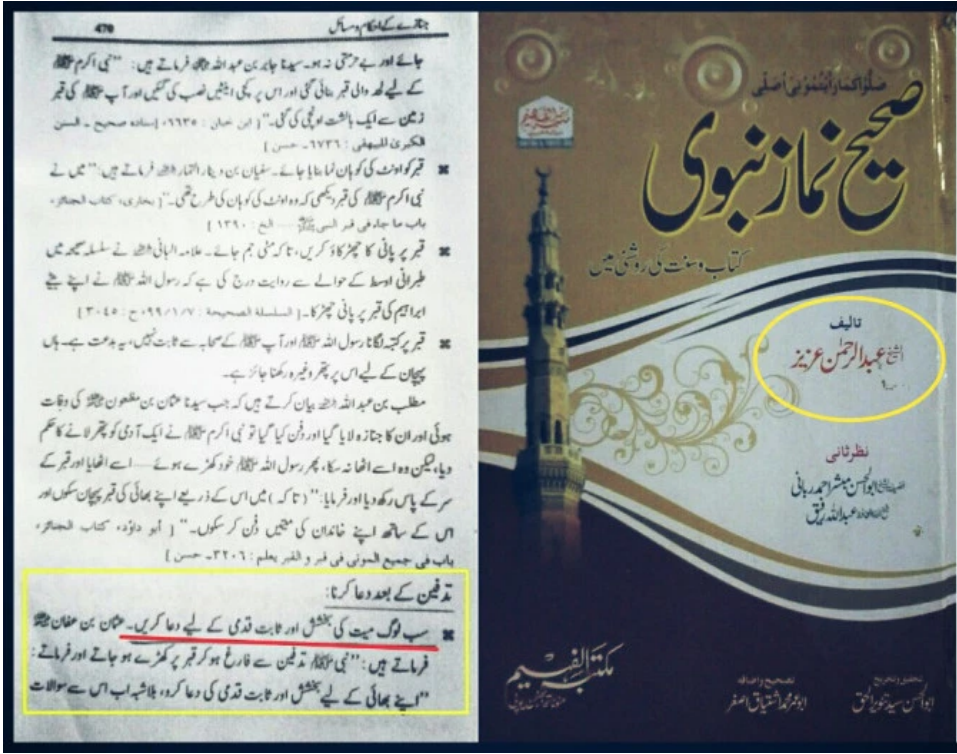 جنازے کے احکام و مسائل 470
جائے اور بے حرمتی نہ ہو۔ سیدنا جابر بن عبد اللہ فرماتے ہیں: "نبی اکرم ﷺ
کے لیے لحد والی قبر بنائی گئی اور اس پر کچی اینٹیں نصب کی گئیں اور آپ ﷺ کی قبر
زمین سے ایک بالشت اونچی کی گئی۔" [ ابن حبان : ٦٦٣٥، إسناده صحيح ـ السنن
الكبرىٰ للبيهقي : ٦٧٣٦ـ حسن ]
قبر کو اونٹ کی کوہان نما بنایا جائے۔ سفیان بن دینار التمار فرماتے ہیں: "میں نے
نبی اکرم ﷺ کی قبر دیکھی کہ وہ اونٹ کی کوہان کی طرح تھی۔" [ بخاری، کتاب الجنائز،
باب ما جاء في قبر النبي ﷺ ..... الخ : ١٣٩٠ ]
قبر پر پانی کا چھڑکاؤ کریں، تاکہ مٹی جم جائے۔ علامہ البانی نے سلسلہ صحیحہ میں
طبرانی اوسط کے حوالے سے روایت درج کی ہے کہ رسول اللہ ﷺ نے اپنے بیٹے
ابراہیم کی قبر پر پانی چھڑکا۔ [ السلسلة الصحيحة : ٩٩/١/٧، ح : ٣٠٤٥ ]
قبر پر کتبہ لگانا رسول اللہ ﷺ اور آپ ﷺ کے صحابہ سے ثابت نہیں، یہ بدعت ہے۔ ہاں
پہچان کے لیے اس پر پتھر وغیرہ رکھنا جائز ہے۔
مطلب بن عبد اللہ بیان کرتے ہیں کہ جب سیدنا عثمان بن مظعون کی وفات
ہوئی اور ان کا جنازہ لایا گیا اور دفن کیا گیا تو نبی اکرم ﷺ نے ایک آدمی کو پتھر لانے کا حکم
دیا، لیکن وہ اسے اٹھا نہ سکا، پھر رسول اللہ ﷺ خود کھڑے ہوئے ..... اسے اٹھایا اور قبر کے
سر کے پاس رکھ دیا اور فرمایا: "( تاکہ ) میں اس کے ذریعے اپنے بھائی کی قبر پہچان سکوں اور
اس کے ساتھ اپنے خاندان کی میتیں دفن کر سکوں۔" [ أبو داؤد، كتاب الجنائز،
باب في جميع الموتى في قبر و القبر يعلم : ٣٢٠٦ـ حسن ]
تدفین کے بعد دعا کرنا:
سب لوگ میت کی بخشش اور ثابت قدمی کے لیے دعا کریں۔ عثمان بن عفان
فرماتے ہیں: "نبی ﷺ تدفین سے فارغ ہو کر قبر پر کھڑے ہو جاتے اور فرماتے:
"اپنے بھائی کے لیے بخشش اور ثابت قدمی کی دعا کرو، بلاشبہ اب اس سے سوالات
صَلُّوا كَمَا رَأَيْتُمُونِي أُصَلِّي
صحیح نماز نبوی
کتاب و سنت کی روشنی میں
تالیف
الشیخ عبدالرحمٰن عزیز
نظر ثانی
ابوالحسن مبشر احمد ربانی
عبداللہ رفیق
مکتبۃ الفہیم
تصحیح و اضافہ
ابو محمد اشتیاق اصغر
تحقیق و تخریج
ابوالحسن سید تنویر الحق